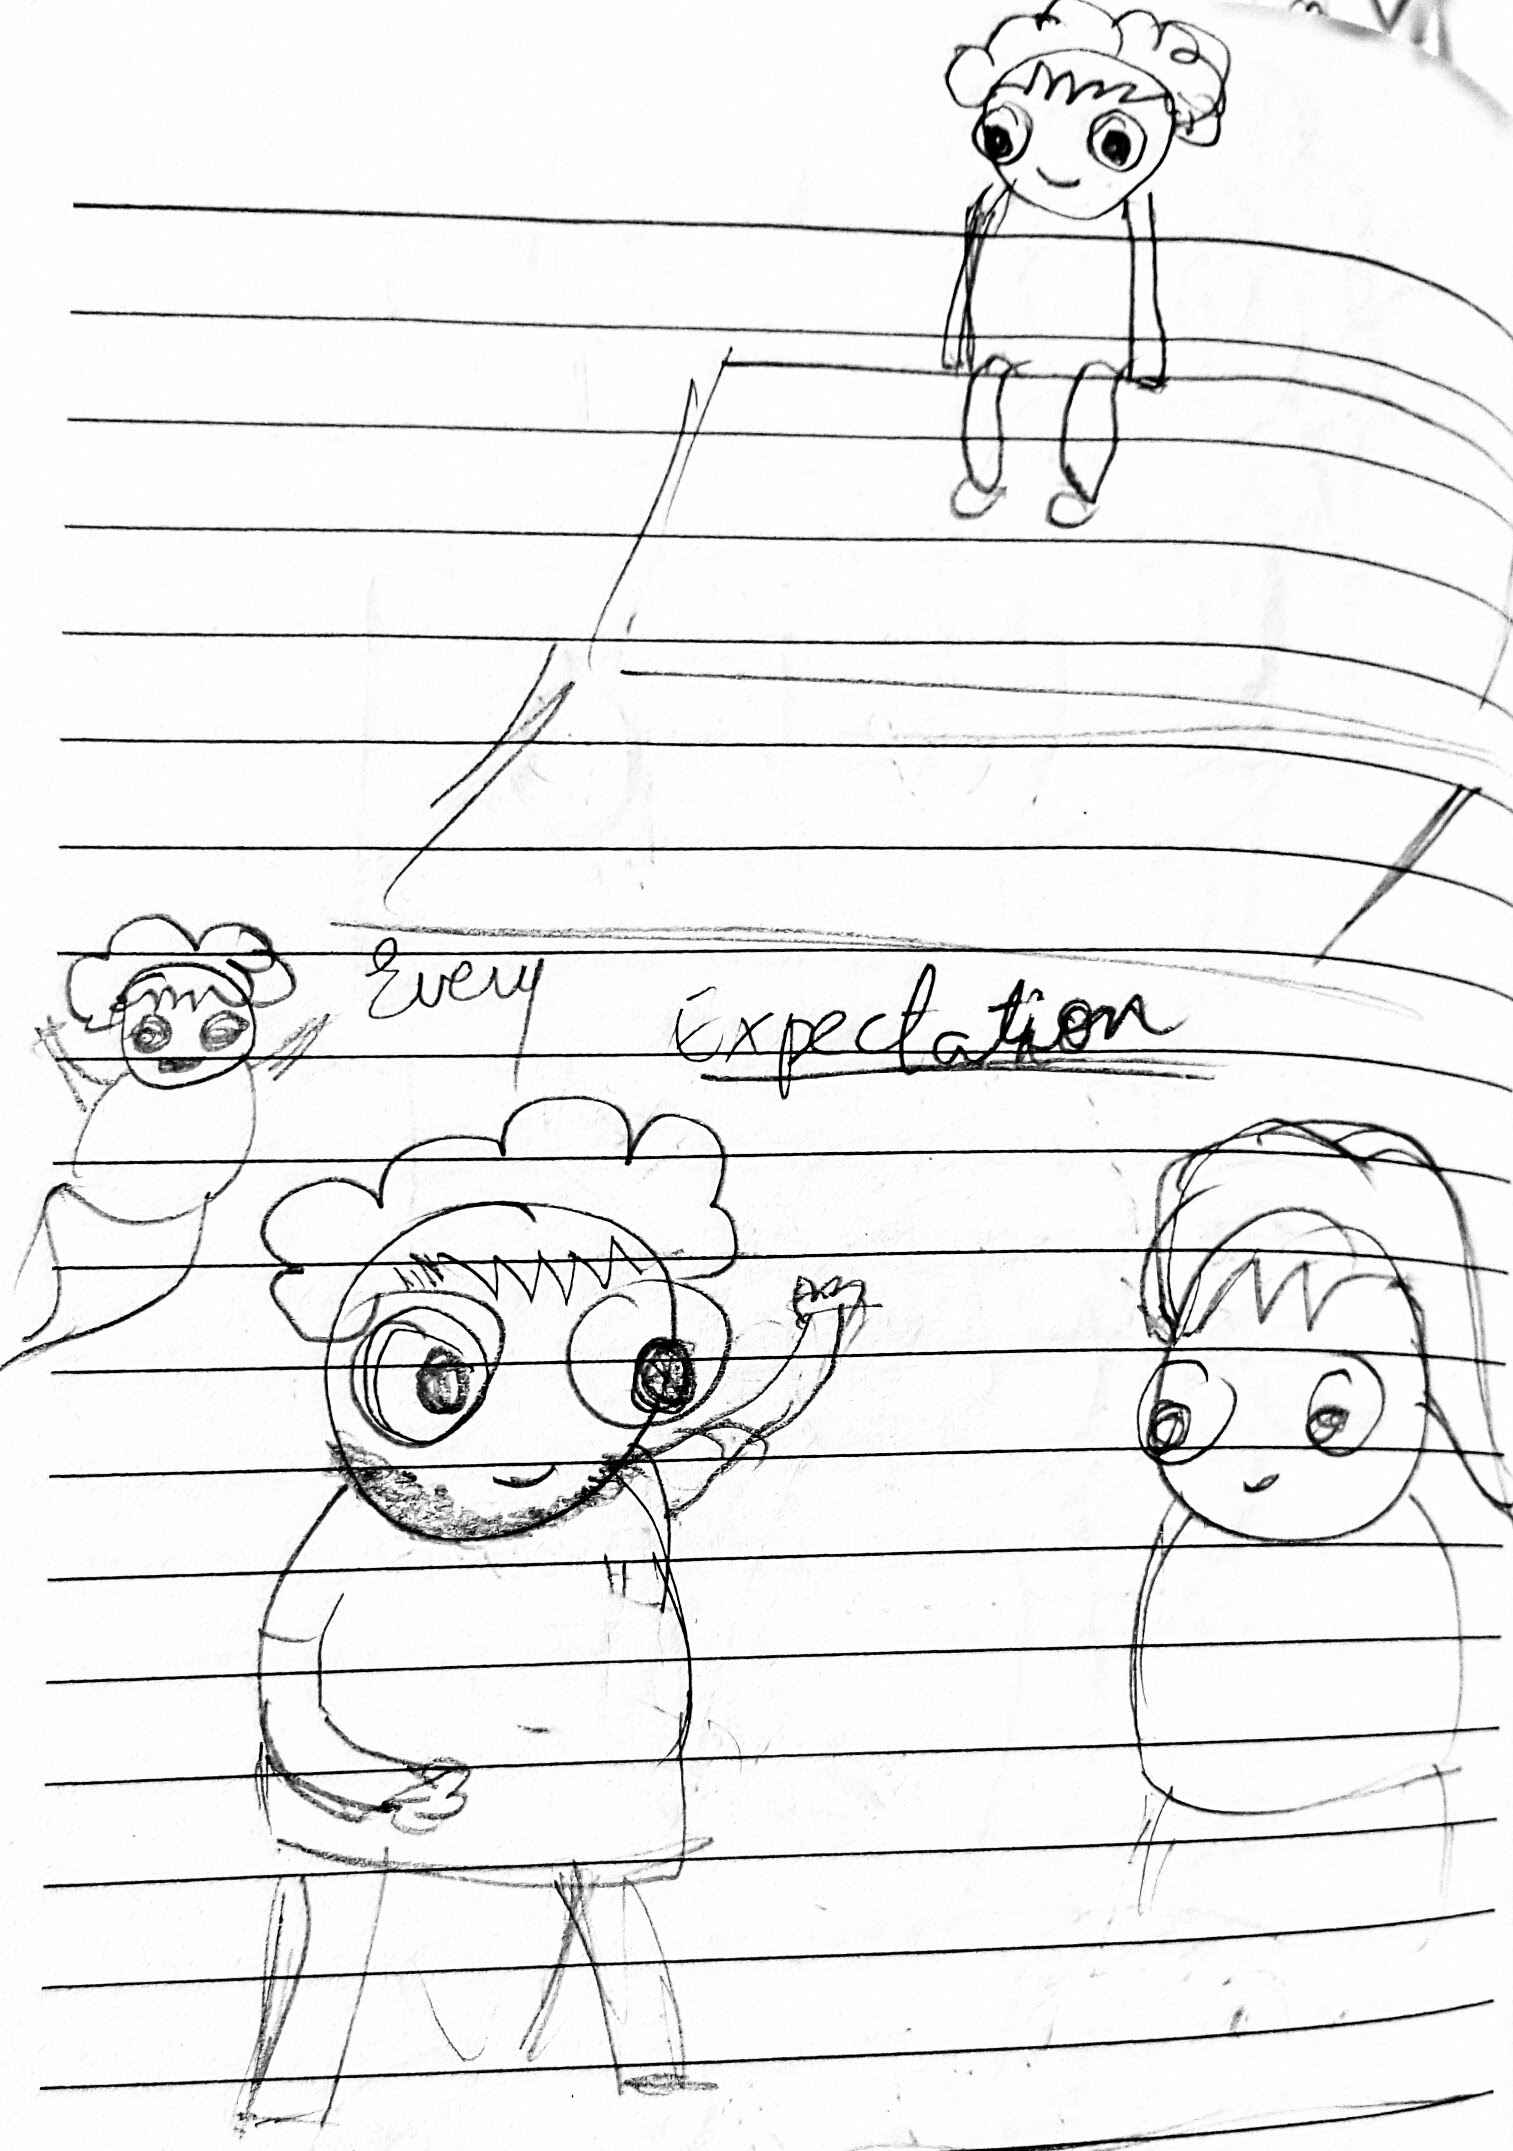 Every
Expectation